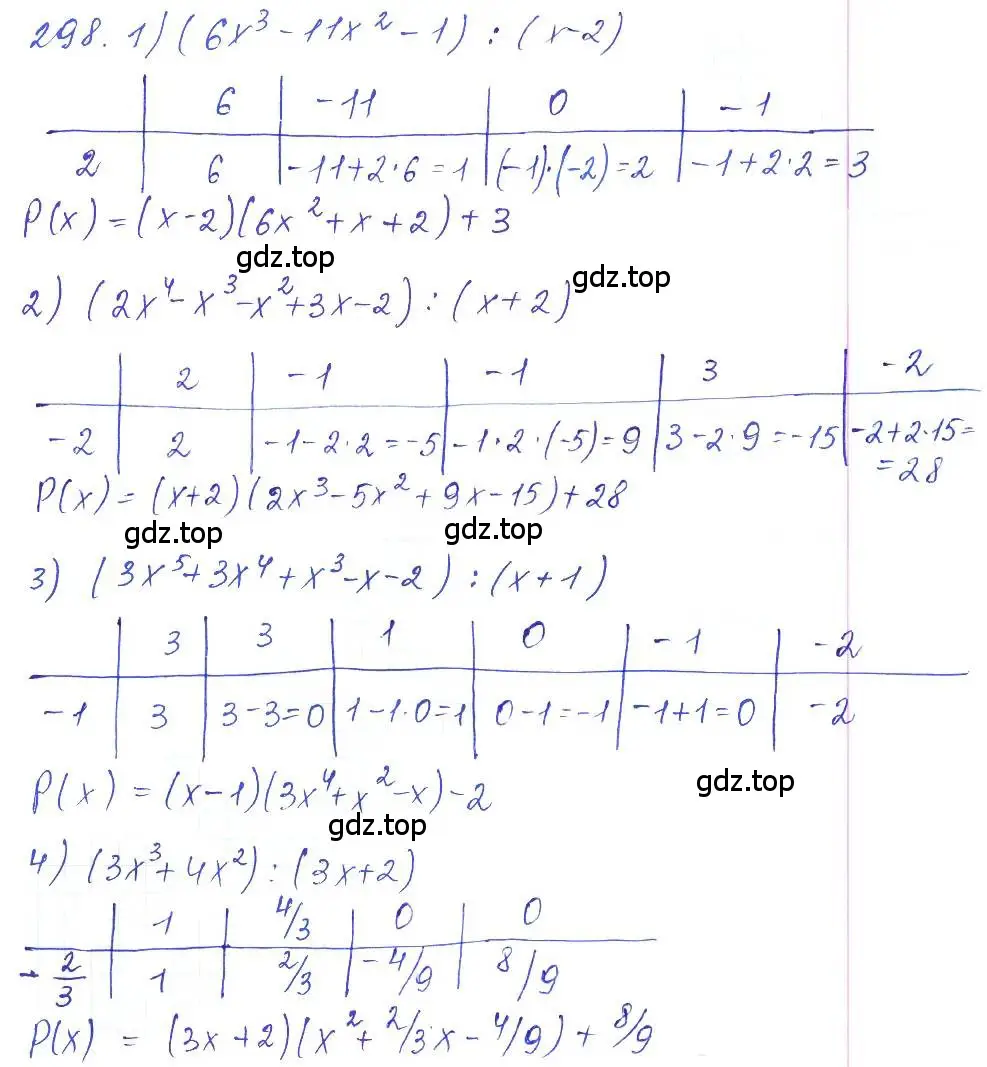 298. 1) (6x³ - 11x² - 1) : (x-2)
6 -11 0 -1
2 6 -11+2·6=1 (-1)·(-2)=2 -1+2·2=3
P(x) = (x-2)(6x²+x+2)+3
gdz.top gdz.top
2) (2x⁴-x³-x²+3x-2) : (x+2)
2 -1 -1 3 -2
-2 2 -1-2·2=-5 -1·2·(-5)=9 3-2·9=-15 -2+2·15=
=28
P(x) = (x+2)(2x³-5x²+9x-15)+28
gdz.top gdz.top
3) (3x⁵+3x⁴+x³-x-2) : (x+1)
3 3 1 0 -1 -2
-1 3 3-3=0 1-1·0=1 0-1=-1 -1+1=0 -2
P(x) = (x-1)(3x⁴+x²-x)-2
gdz.top gdz.top
4) (3x³+4x²) : (3x+2)
1 4/3 0 0
-2/3 1 2/3 -4/9 8/9
P(x) = (3x+2)(x²+2/3x-4/9)+8/9